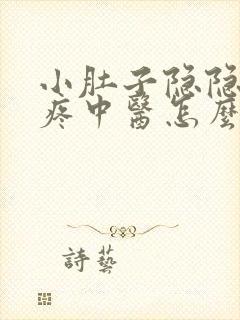 小肚子隐隐
疼中醫怎麽
詩藝